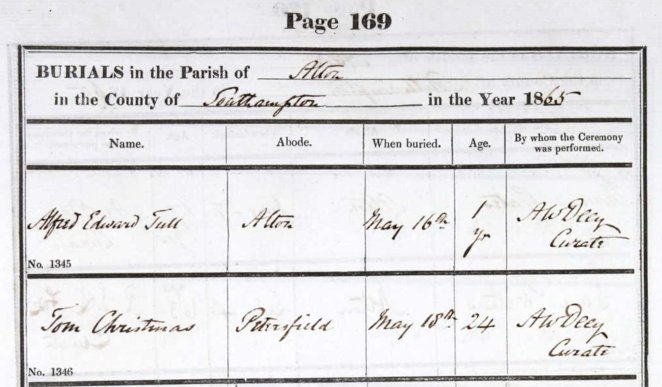 Page 169
BURIALS in the Parish of Alton
in the County of Southampton in the Year 1865
Name. Abode. When buried. Age. By whom the Ceremony
was performed.
Alfred Edward Tull Alton May 16th 1 AW Deey
yr Curate
No. 1345
Tom Christmas Petersfield May 18th 24 AW Deey
Curate
No. 1346